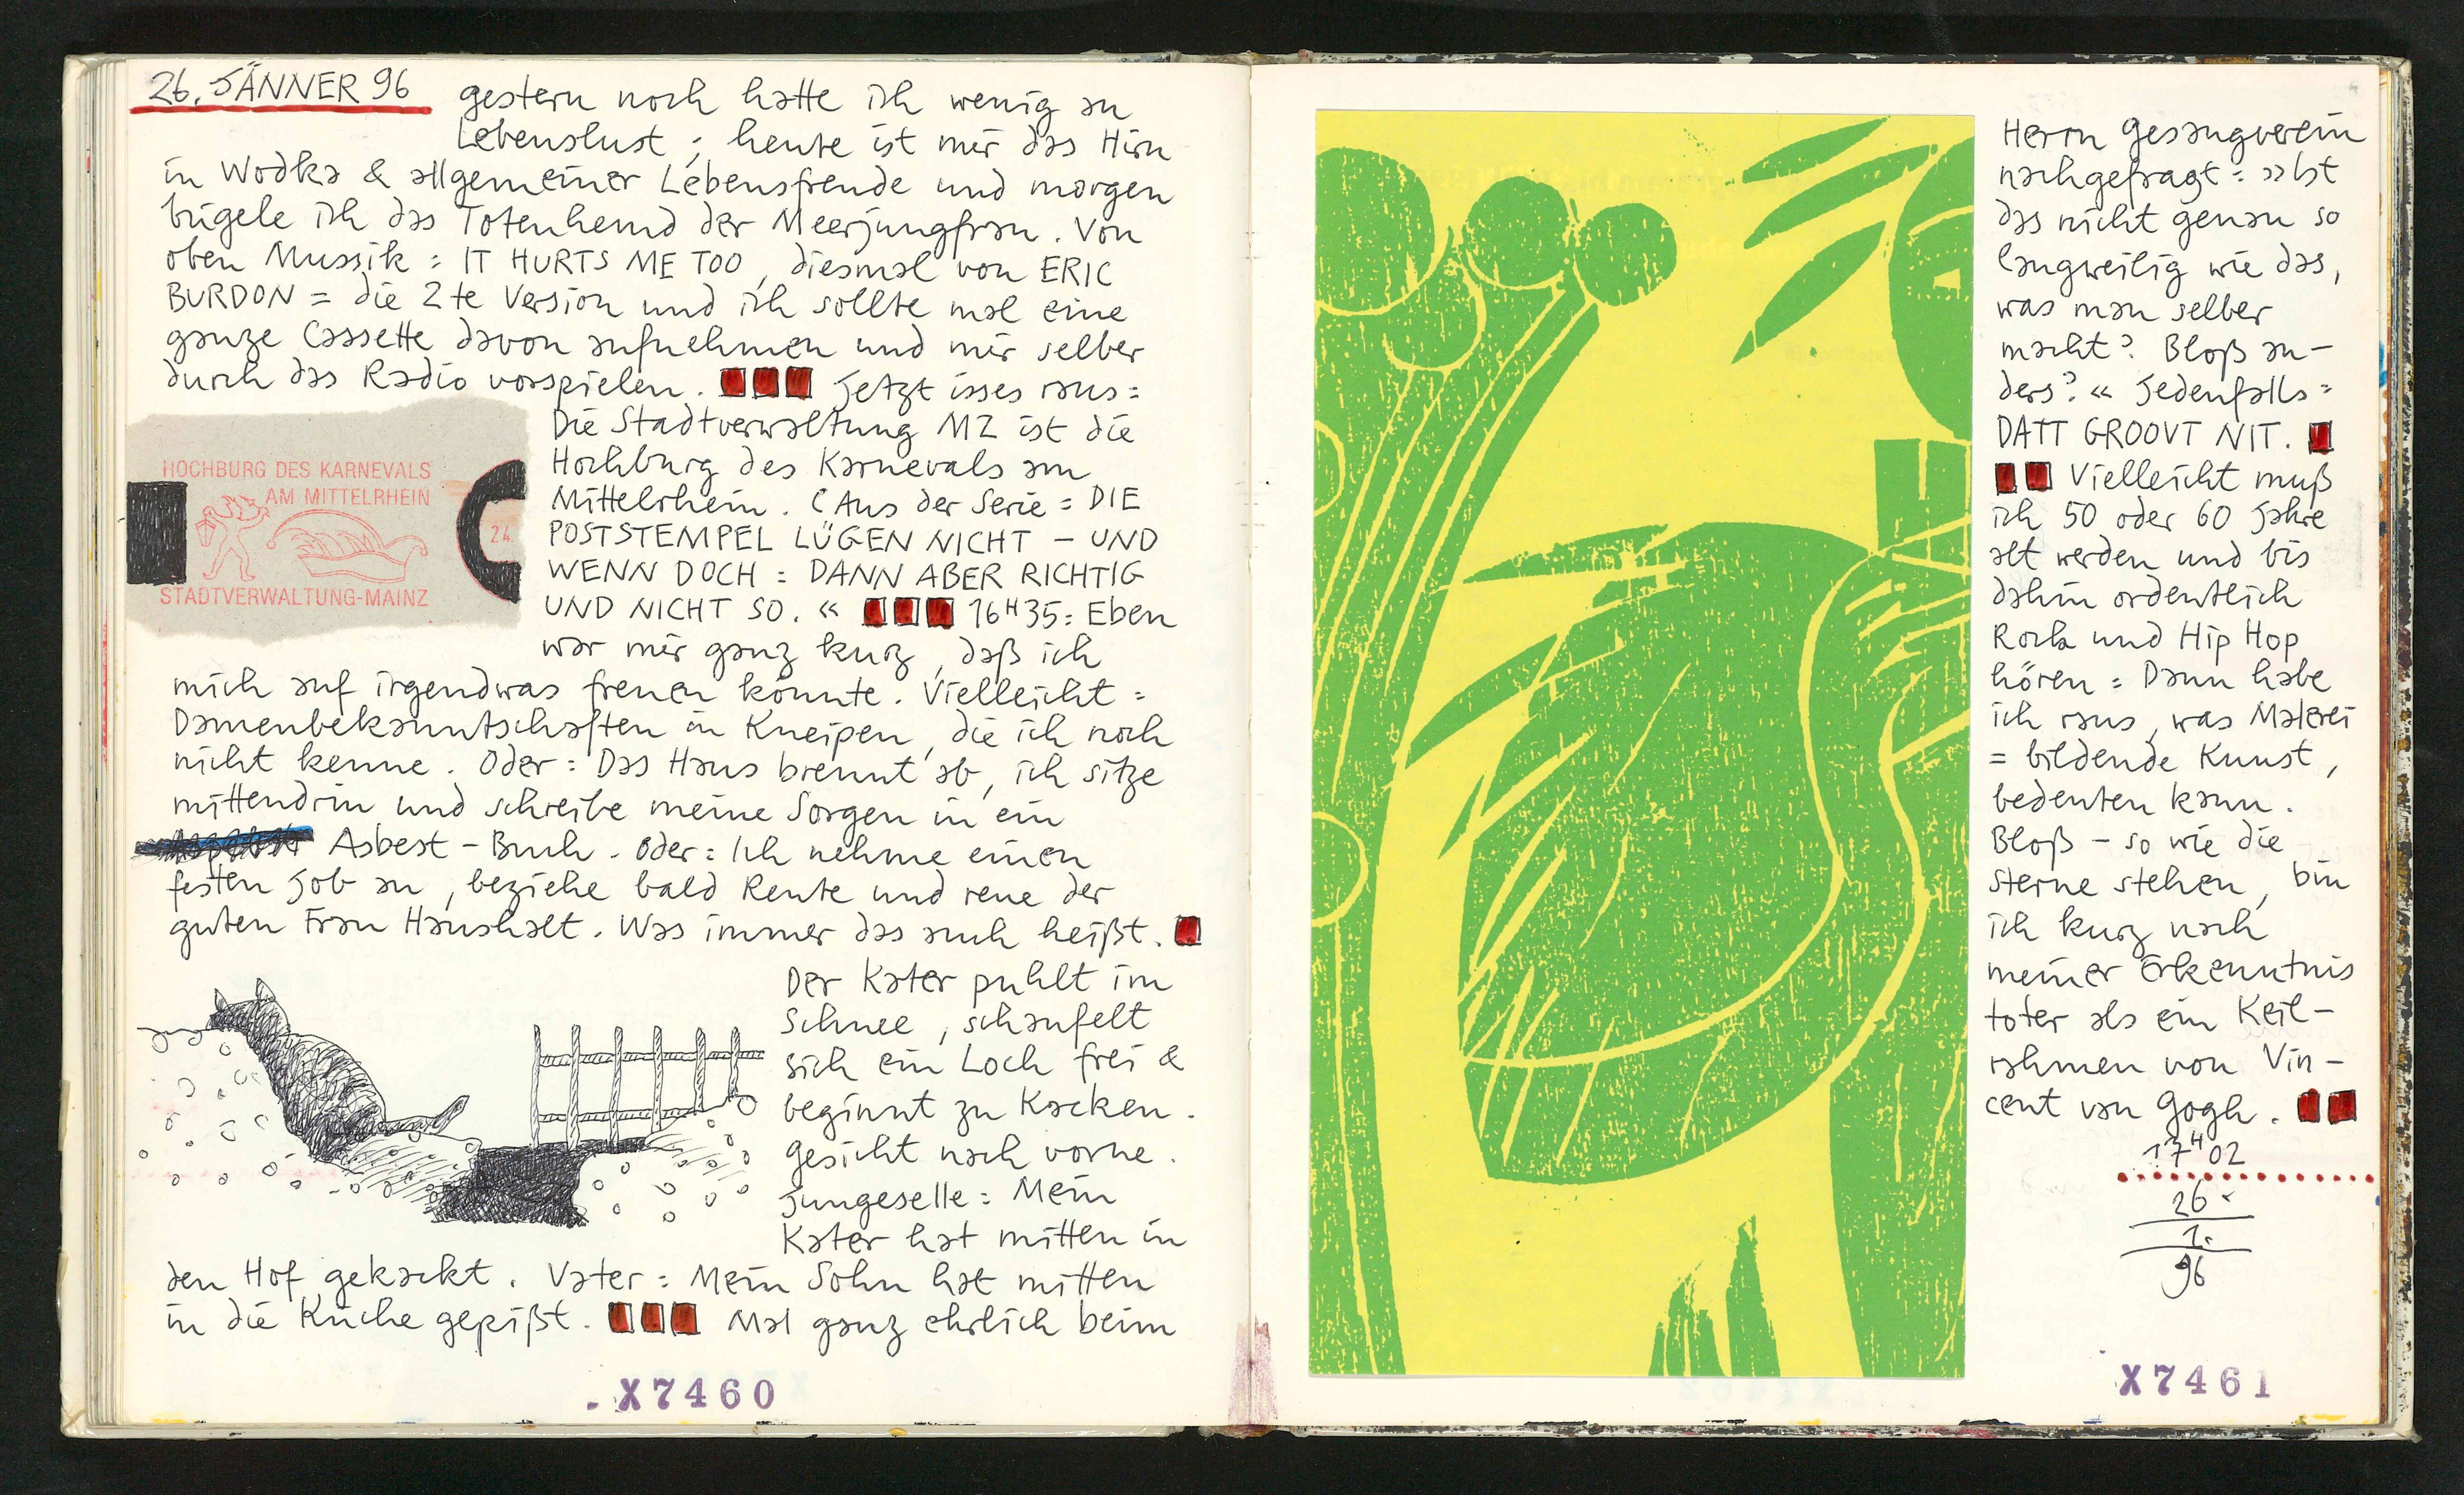 26. JÄNNER 96
gestern noch hatte ich wenig an
Lebenslust ; heute ist mir das Hirn
in Wodka & allgemeiner Lebensfreude und morgen
bügele ich das Totenhemd der Meerjungfrau. Von
oben Mussik : IT HURTS ME TOO, diesmal von ERIC
BURDON = die 2te Version und ich sollte mal eine
ganze Cassette davon aufnehmen und mir selber
durch das Radio vorspielen. Jetzt isses raus :
Die Stadtverwaltung MZ ist die
Hochburg des Karnevals am
Mittelrhein. (Aus der Serie : DIE
POSTSTEMPEL LÜGEN NICHT – UND
WENN DOCH : DANN ABER RICHTIG
UND NICHT SO. « 16H35 : Eben
war mir ganz kurz, daß ich
mich auf irgendwas freuen könnte. Vielleicht :
Damenbekanntschaften in Kneipen, die ich noch
nicht kenne. Oder : Das Haus brennt ab, ich sitze
mittendrin und schreibe meine Sorgen in ein
Asbest-Buch. Oder : Ich nehme einen
festen Job an, beziehe bald Rente und rene der
guten Frau Haushalt. Was immer das auch heißt.
HOCHBURG DES KARNEVALS
AM MITTELRHEIN
24.
STADTVERWALTUNG-MAINZ
Der Kater puhlt im
Schnee, schaufelt
sich ein Loch frei &
beginnt zu Kacken.
Gesicht nach vorne.
Jungeselle : Mein
Kater hat mitten in
den Hof gekackt. Vater : Mein Sohn hat mitten
in die Küche gepißt. Mal ganz ehrlich beim
X7460
Herrn Gesangverein
nachgefragt : »Ist
das nicht genau so
langweilig wie das,
was man selber
macht? Bloß an-
ders?« Jedenfalls :
DATT GROOVT NIT.
Vielleicht muß
ich 50 oder 60 Jahre
alt werden und bis
dahin ordentlich
Rock und Hip Hop
hören : Dann habe
ich raus, was Malerei
= bildende Kunst,
bedeuten kann.
Bloß – so wie die
Sterne stehen, bin
ich kurz nach
meiner Erkenntnis
toter als ein Keil-
rahmen von Vin-
cent van Gogh.
17H02
26.
1.
96
X7461